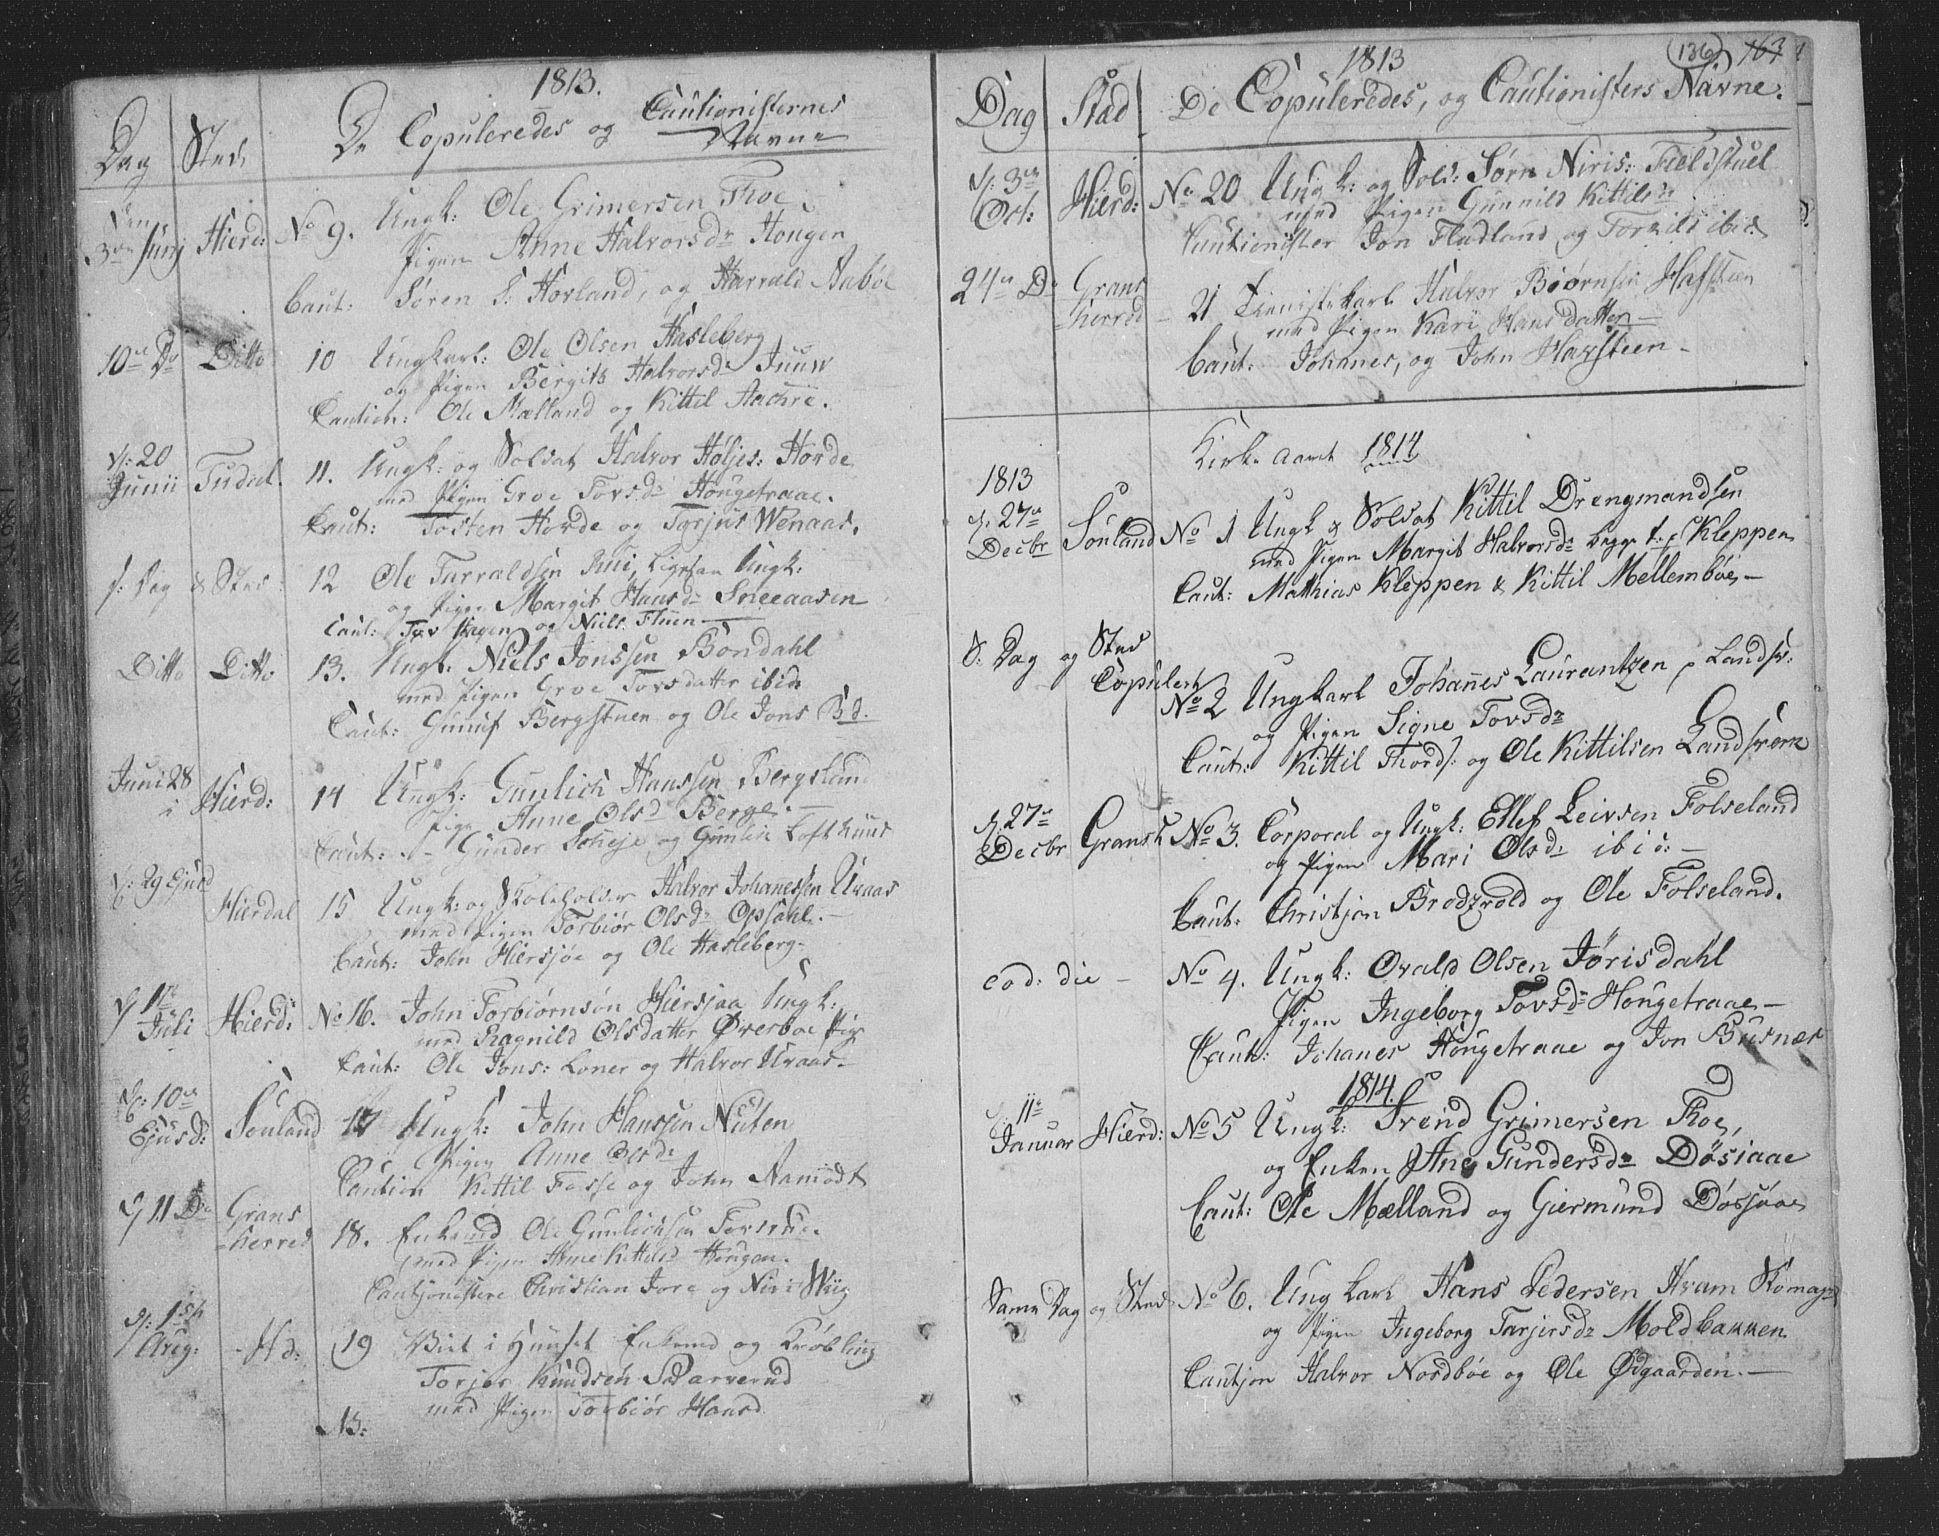 1813.
Dag Sted De Copuleredes og Cautionisternes Navne
Den 3die Junj Hierd: No 9. Ungk: Ole Grimersen Froe
Pigen Anne Halvorsdr Hougen
Caut: Søren S: Hovland, og Harrald Aabøe
10de Do Ditto 10 Ungkarl: Ole Olsen Hasleberg
og Pigen Bergith Halvorsdr Juuv
Caution: Ole Mælland og Kittil Aachre.
d: 20 Junii Tudal 11. Ungk: og Soldat Halvor Høljes: Hovde
med Pigen Groe Tovsdr Hougetraae.
Caut: Tosten Hovde og Torjus Wenaas.
s: Dag & Sted: 12 Ole Turraldsen Rui, Ligesaa Ungk:
og Pigen Margit Hansdr Sneeaasen
Caut: Tov Hagen og Niels Fluen
Ditto Ditto 13. Ungk: Niels Jonssen Bondahl
med Pigen Groe Tovsdatter ibid:
Caut: Gunuf Bergstuen og Ole Jons Bd.
Juni 28 Hierd: 14 Ungk: Gunlich Hanssen Bergsland
Pige Anne Olsd Berge.
Caut: Gunder Scheje og Gunlic Lofthuus
d: 29 Ejusd Hierdal 15 Ungk: og Skoleholder Halvor Johanessen Uraas
med Pigen Torbiør Olsdr Opsahl.
Caut: John Hiersjøe og Ole Hasleberg
d 1ste Juli Hierd: No 16. John Torbiørnsøn Hiersjaa Ungk:
med Ragnild Olsdatter Øverboe Pig
Caut: Ole Jons: Loner og Halvor Uraas
d: 10de Ejusd: Souland 17 Ungk: John Hanssen Nuten
Pigen Anne Olsdr
Caution Kittil Fosse og John Aamodt
d 11 Do Gransherred 18. Enkemd Ole Gunlichsen
med Pigen Anne Kittelsd Hougan.
Cautjonistere Christian Jore og Niri Wiig
d: 1ste Aug: Hd: 19 Viet i Huuset Enkemd og Krøbling
Torjer Knudsen Skarverud
med Pigen Torbiør Hansd
NB:
136 163
1813
Dag Stæd De Copuleredes, og Cautionisters Navne.
d: 3die Oct: Hierd: No 20 Ungk: og Sold: Sørn Niris: Fieldstuel
med Pigen Gunnild Kittilsdr
Cautionister Jon Fladland og Torkild ibid
24de Do Gransherred 21 Tienistekarl Halvor Biørnsen Hafsteen
med Pigen Kari Hansdatter
Caut: Johanes, og John Havsteen
Kirke Aaret 1814
1813
d: 27de Decbr Souland No 1 Ungk & Soldat Kittil Drengmandsen
med Pigen Margit Halvorsdr begge f: Kleppen
Caut: Mathias Kleppen & Kittil Mellembøe
S: Dag og Sted Copulert No 2 Ungkarl Johannes Laurantzen Landsv:
og Pigen Signe Tovsdr
Caut: Kittil Thords: og Ole Kittilsen Landsvern
d: 27de Decbr Gransh No 3. Corporal og Ungk: Ellef Leivsen Folseland
og Pigen Mari Olsdr ibid:
Caut: Christjan Brodzvold og Ole Folseland.
eod: die No 4. Ungk: Ovald Olsen Jørisdahl
Pigen Ingeborg Tovsdr Hougetraae
Caut: Johanes Hougetraae og Jon Busnæs
1814.
11te Januar Hierd: No 5 Ungk: Svend Grimersen Froe,
og Enken Ane Gundersdr Døsiaae
Caut: Ole Mælland og Giermund Døssjøae
Same Dag og Sted No 6. Ungkarl Hans Pedersen Hvam Skomag:
og Pigen Ingeborg Tarjersdr Moldbakken
Cautjon Halvor Nordbøe og Ole Ødgaarden.